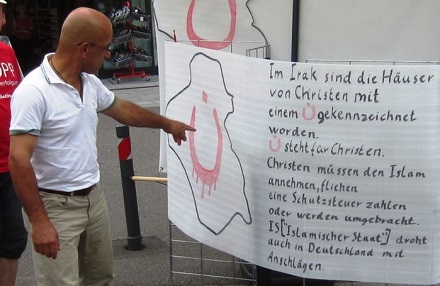 Im Irak sind die Häuser
von Christen mit
einem Ü gekennzeichnet
worden.
Ü steht für Christen.
Christen müssen den Islam
annehmen, fliehen
eine Schutzsteuer zahlen
oder werden umgebracht.
IS ["Islamischer Staat"] droht
auch in Deutschland mit
Anschlägen.